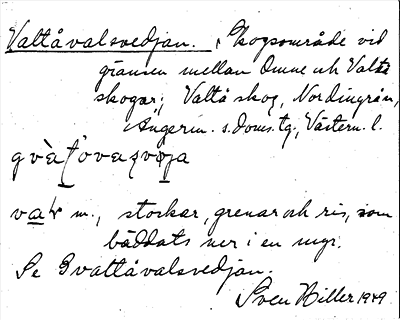 Valtåvalsvedjan. Skogsområde vid
gränsen mellan Omne och Valtå
skogar; Valtå skog, Nordingrån,
Ångerm. s. doms. tg., Västern. l.
m., stockar, grenar och ris, som
bäddats ner i en myr.
Se Gvaltåvalsvedjan.
Sven Hiller 1949.